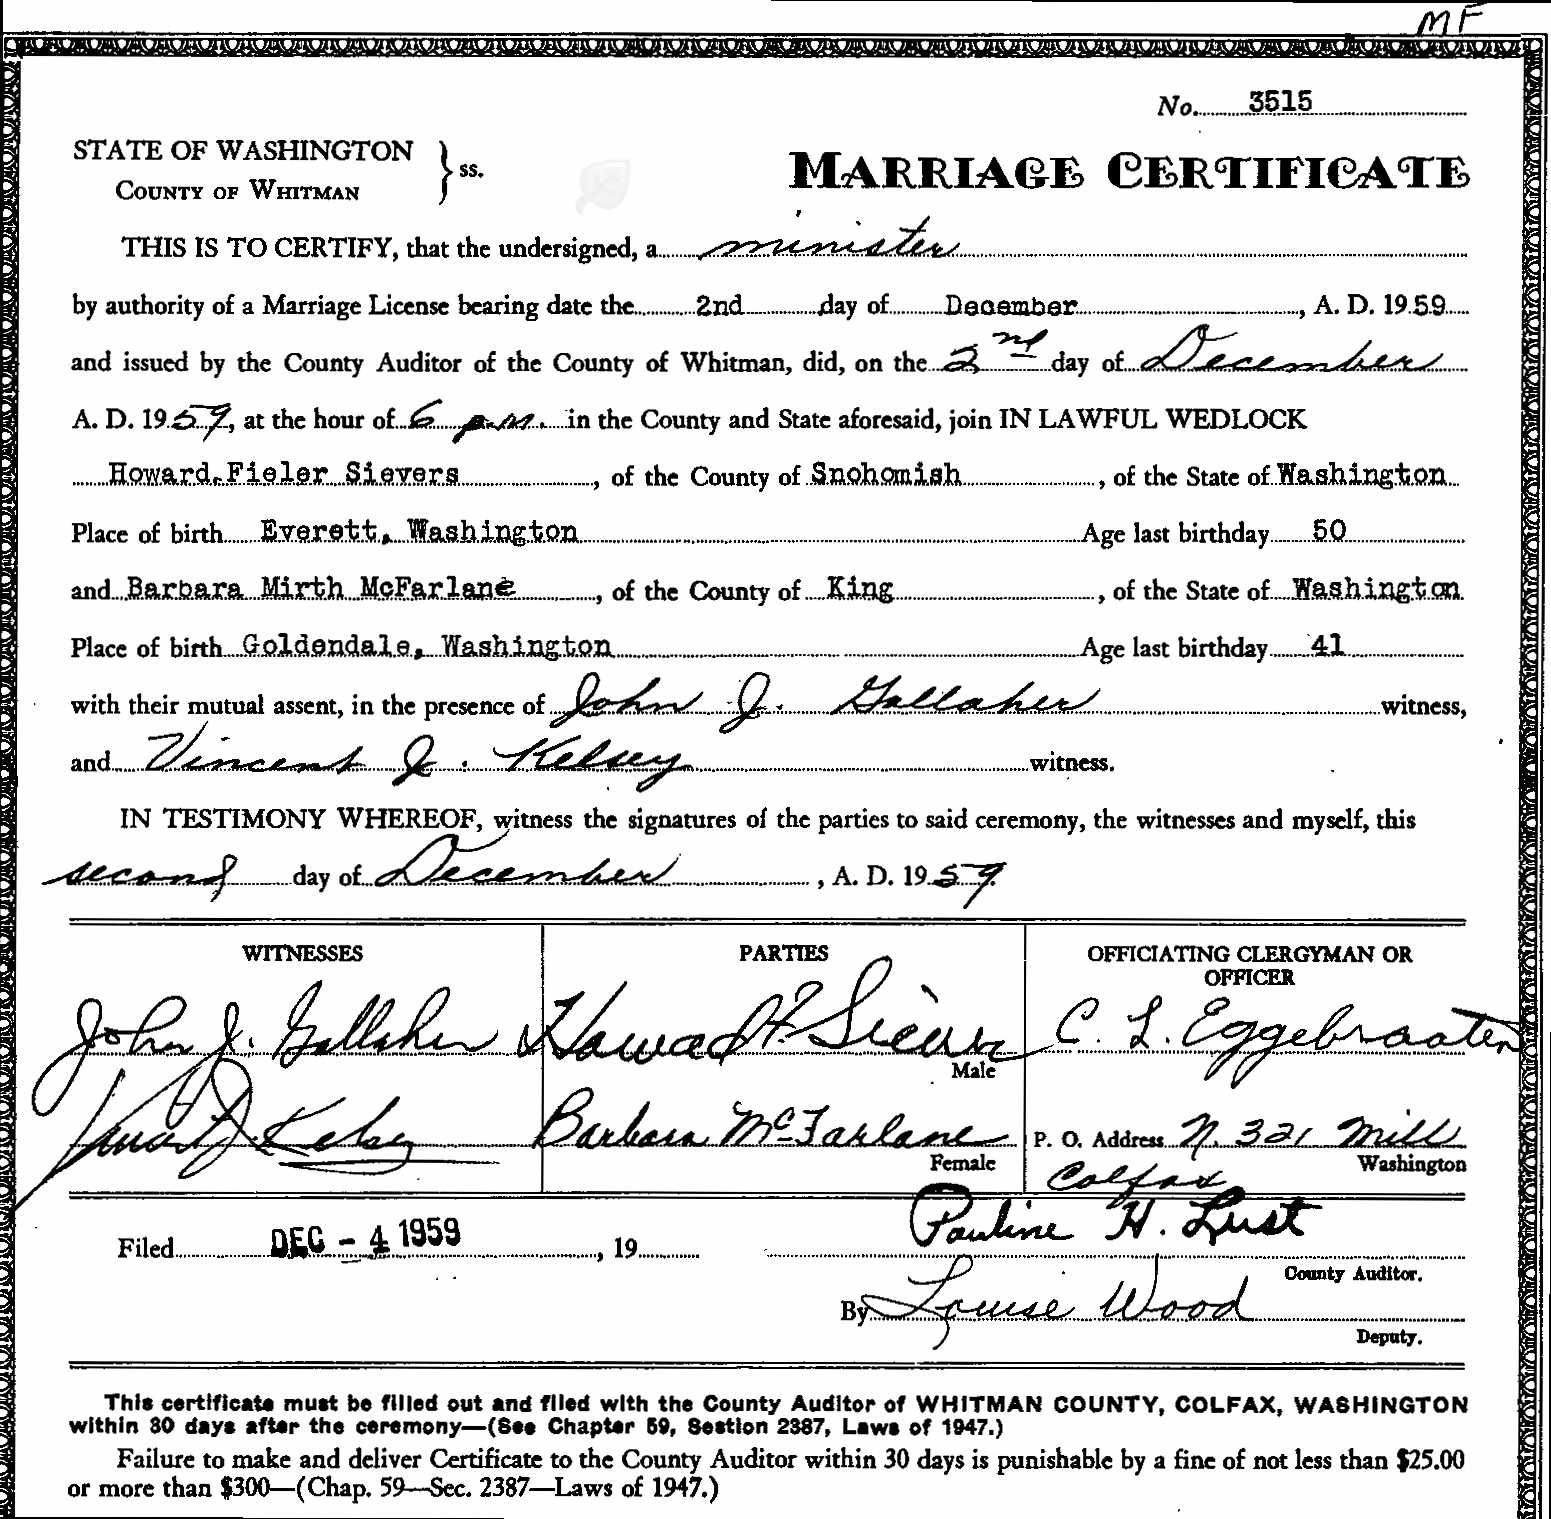 MF
No. 3515
STATE OF WASHINGTON
COUNTY OF WHITMAN } ss.
MARRIAGE CERTIFICATE
THIS IS TO CERTIFY, that the undersigned, a minister
by authority of a Marriage License bearing date the 2nd day of December, A. D. 1959
and issued by the County Auditor of the County of Whitman, did, on the 2nd day of December
A. D. 1959, at the hour of 6 p.m. in the County and State aforesaid, join IN LAWFUL WEDLOCK
Howard Fieler Sievers, of the County of Snohomish, of the State of Washington
Place of birth Everett, Washington Age last birthday 50
and Barbara Mirth McFarlane, of the County of King, of the State of Washington
Place of birth Goldendale, Washington Age last birthday 41
with their mutual assent, in the presence of John J. Gallaher witness,
and Vincent J. Kelsey witness.
IN TESTIMONY WHEREOF, witness the signatures of the parties to said ceremony, the witnesses and myself, this
second day of December, A. D. 1959.
WITNESSES
John J. Gallaher
Vincent J. Kelsey
PARTIES
Howard F. Sievers
Male
Barbara McFarlane
Female
OFFICIATING CLERGYMAN OR
OFFICER
C. L. Eggebraaten
P. O. Address N. 321 Mill
Colfax Washington
Filed DEC - 4 1959, 19
Pauline H. Lust
County Auditor.
By Louise Wood
Deputy.
This certificate must be filled out and filed with the County Auditor of WHITMAN COUNTY, COLFAX, WASHINGTON
within 30 days after the ceremony—(See Chapter 59, Section 2387, Laws of 1947.)
Failure to make and deliver Certificate to the County Auditor within 30 days is punishable by a fine of not less than $25.00
or more than $300—(Chap. 59—Sec. 2387—Laws of 1947.)